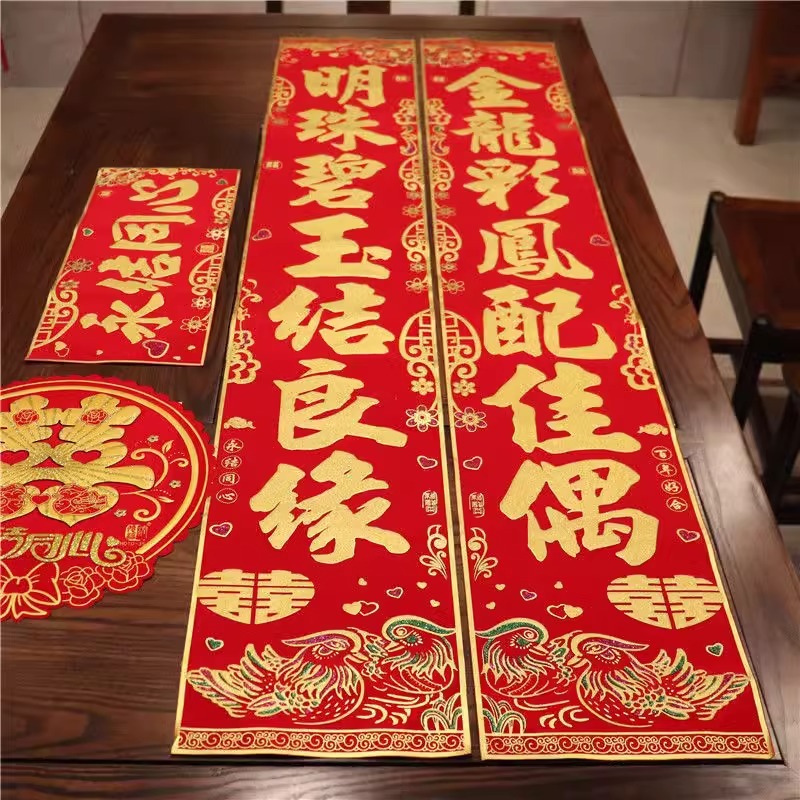 金龍彩鳳配佳偶
明珠碧玉结良缘
永结同心
百年好合
永结同心
囍
囍
囍
同心